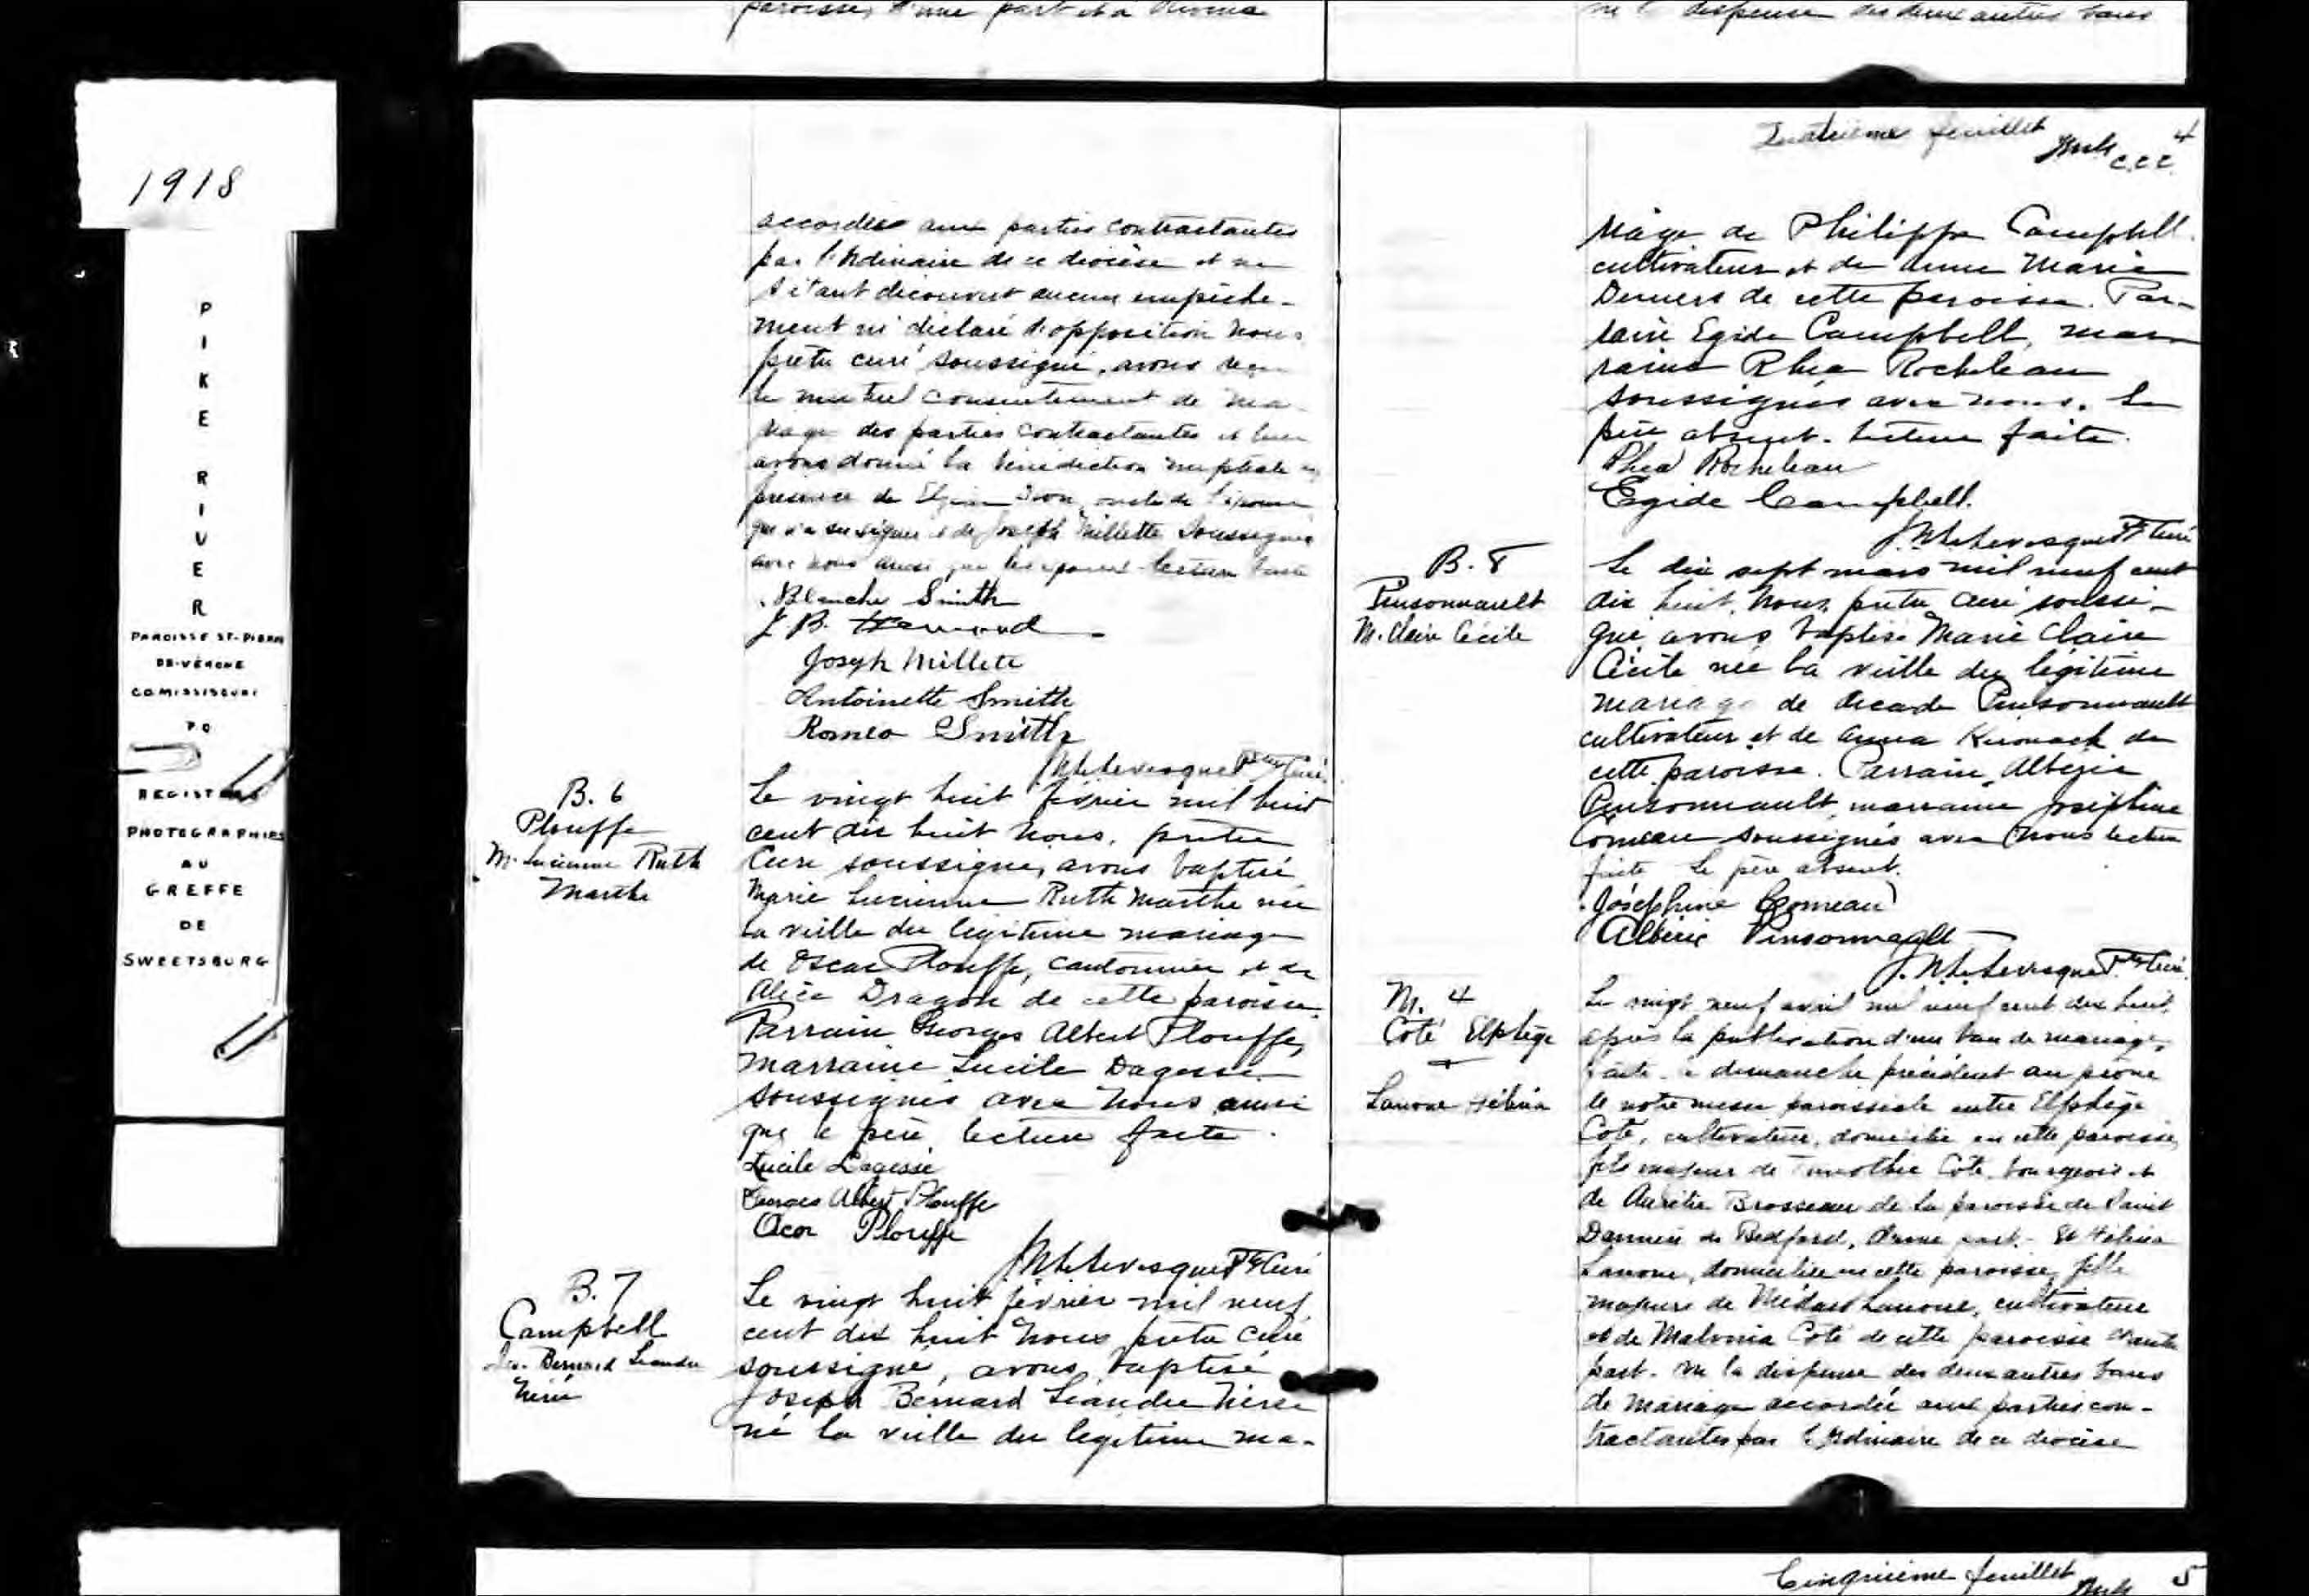 paroisse, d'une part et à
dispense des deux autres bans
1918
PIKE RIVER
PAROISSE ST-PIERRE
DE-VÉRONE
COMISSISCUOI
PQ
REGISTRES
PHOTOGRAPHIES
AU
GREFFE
DE
SWEETSBURG
accordée aux parties contractantes
par l'Ordinaire de ce diocèse et ne
s'étant découvert aucun empêche-
ment ni déclaré d'opposition nous
prêtre curé soussigné, avons reçu
le mutuel consentement de ma-
riage des parties contractantes et leur
avons donné la bénédiction nuptiale en
présence de oncle de l'épouse
qui n'a su signer et de Joseph Millette soussigné
avec nous ainsi que les époux. Lecture faite
Blanche Smith
J. B.
Joseph Millette
Antoinette Smith
Romeo Smith
Levesque Ptre Curé
B. 6
Plouffe
M. Lucienne Ruth
Marthe
Le vingt huit février mil huit
cent dix huit nous, prêtre
Curé soussigné, avons baptisé
Marie Lucienne Ruth Marthe née
la veille du légitime mariage
de Oscar Plouffe, cantonnier et de
Alice Dragon de cette paroisse.
Parrain Georges Albert Plouffe,
marraine Lucile Dagesse
soussignés avec nous ainsi
que le père, lecture faite.
Lucile Dagesse
Georges Albert Plouffe
Oscar Plouffe
Levesque Ptre Curé
B. 7
Campbell
Jos. Bernard Léandre
Nérée
Le vingt huit février mil neuf
cent dix huit nous prêtre curé
soussigné, avons baptisé
Joseph Bernard Léandre Nérée
né la veille du légitime ma-
Quatrième feuillet
4
C.C.C.
riage de Philippe Campbell
cultivateur et de Marie
Demers de cette paroisse. Par-
rain Egide Campbell, mar-
raine Rhea Rocheleau
soussignés avec nous. Le
père absent. Lecture faite.
Rhea Rocheleau
Egide Campbell.
Levesque Ptre Curé
B. 8
Pinsonnault
M. Claire Cécile
Le dix sept mars mil neuf cent
dix huit, nous, prêtre curé soussi-
gné, avons baptisé Marie Claire
Cécile née la veille du légitime
mariage de Pinsonnault
cultivateur et de Anna Kirouack de
cette paroisse. Parrain Albéric
Pinsonnault, marraine Joséphine
Comeau soussignés avec nous lecture
faite le père absent.
Joséphine Comeau
Albéric Pinsonnault
Levesque Ptre Curé.
M. 4
Coté Elphège
Lanoue Hélina
Le vingt neuf avril mil neuf cent dix huit,
après la publication d'un ban de mariage,
faite le dimanche précédent au prône
de notre messe paroissiale entre Elphège
Coté, cultivateur, domicilié en cette paroisse,
fils majeur de Timothée Coté, bourgeois et
de Aurélie Brosseau de la paroisse de Saint
Damien de Bedford, d'une part. - Et Hélina
Lanoue, domiciliée en cette paroisse, fille
majeure de Médard Lanoue, cultivateur
et de Malvina Coté de cette paroisse d'autre
part. Vu la dispense des deux autres bans
de mariage accordée aux parties con-
tractantes par l'Ordinaire de ce diocèse
Cinquième feuillet
5